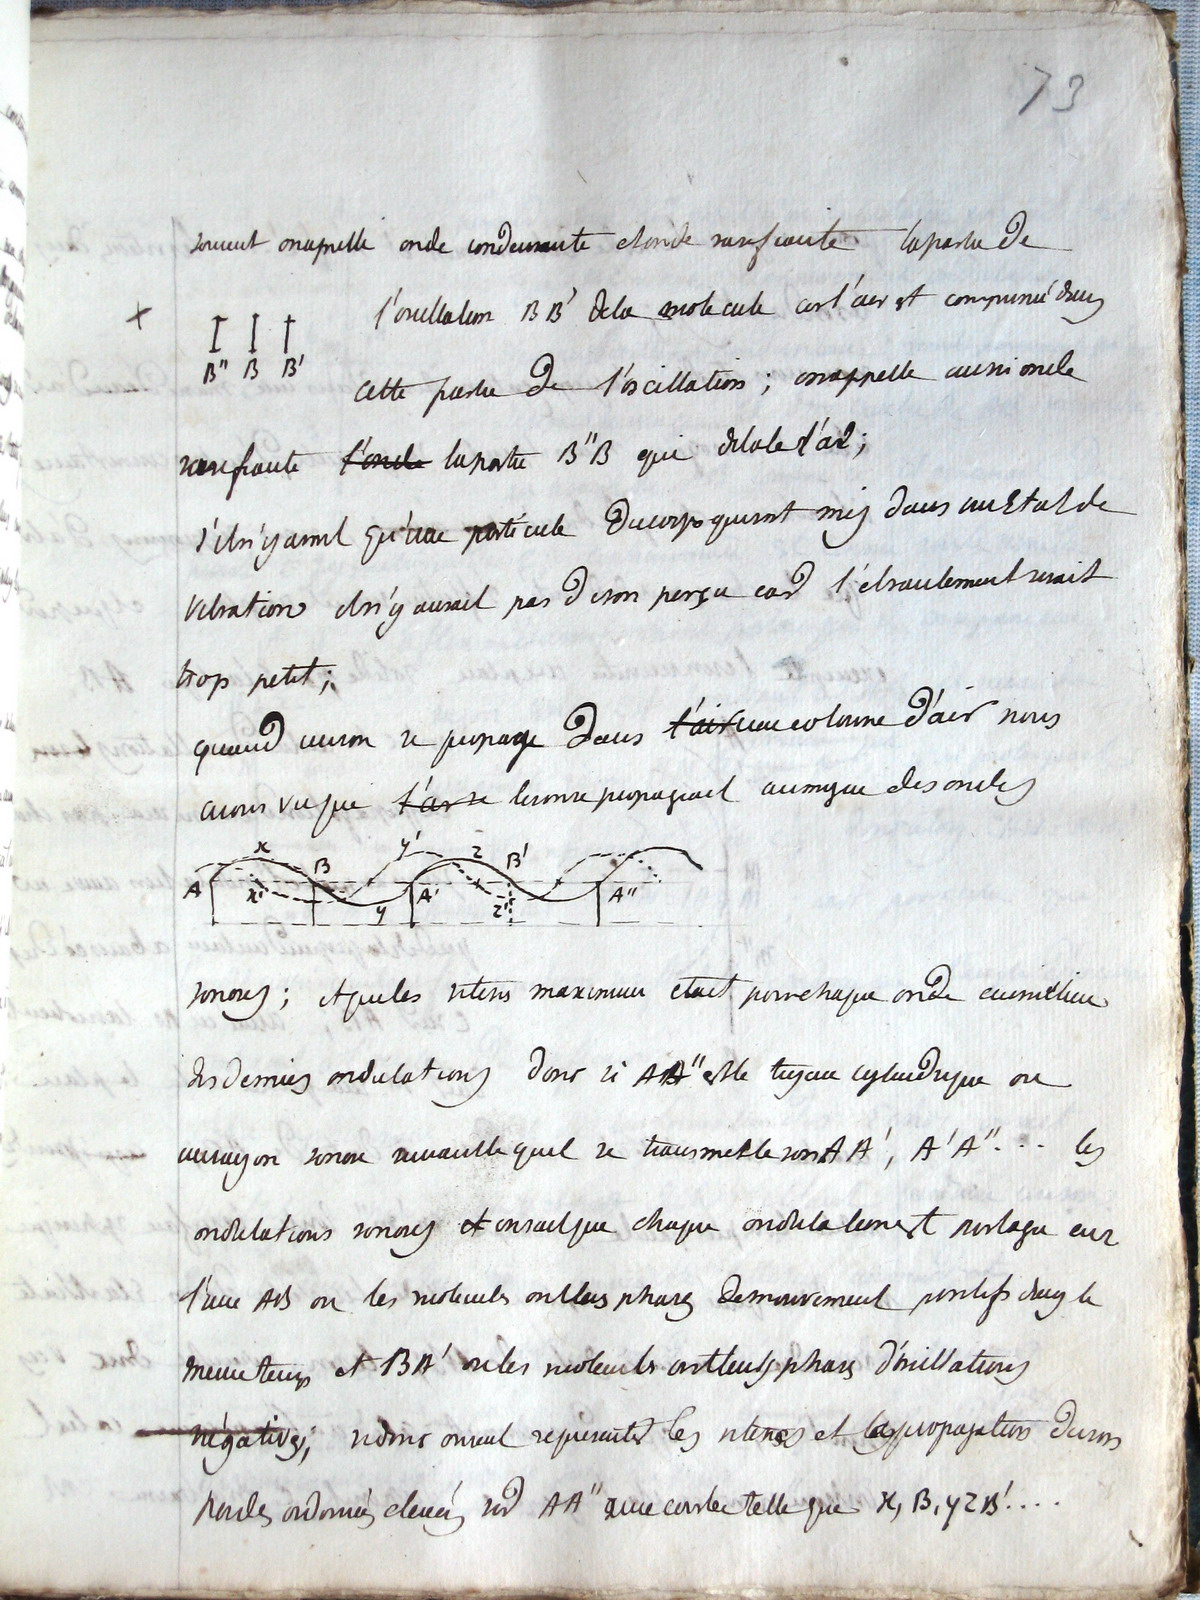 73
souvent onapelle onde condensante etonde rarefiante lapartie de
+ l'oscillation BB' dela molecule car l'air est comprimé dans
B" B B'
cette partie de l'oscillation ; onappelle aussi onde
rarefiante l'onde lapartie B"B qui dilate l'air;
s'iln'yavait qu'une particule ducorps quisoit mis dans unEtat de
vibration iln'y aurait pas deson perçu car l'ebranlement serait
trop petit;
quand unson se propage dans l'air une colonne d'air nous
avons vu que l'air se leson se propageait aumoyen des ondes
A x x' B y y' A' z z' B' A"
sonores ; et que les vitess maximum etait pour chaque onde aumilieu
des demies ondulations donc si AA" est le tuyau cylindrique ou
unrayon sonore suivant lequel se transmet le son AA', A'A".... les
ondulations sonores et onsait que chaque ondulation est partagée en2
l'une AB ou les molecules ont leurs phases demouvement positifs dans le
meme temps et BA' ou les molecules ont leurs phases d'oscillations
négatives; sidonc onveut representer les vitesses et la propagation duson
par des ordonnées elevées sur AA" une courbe telle que x, B, y z B'....